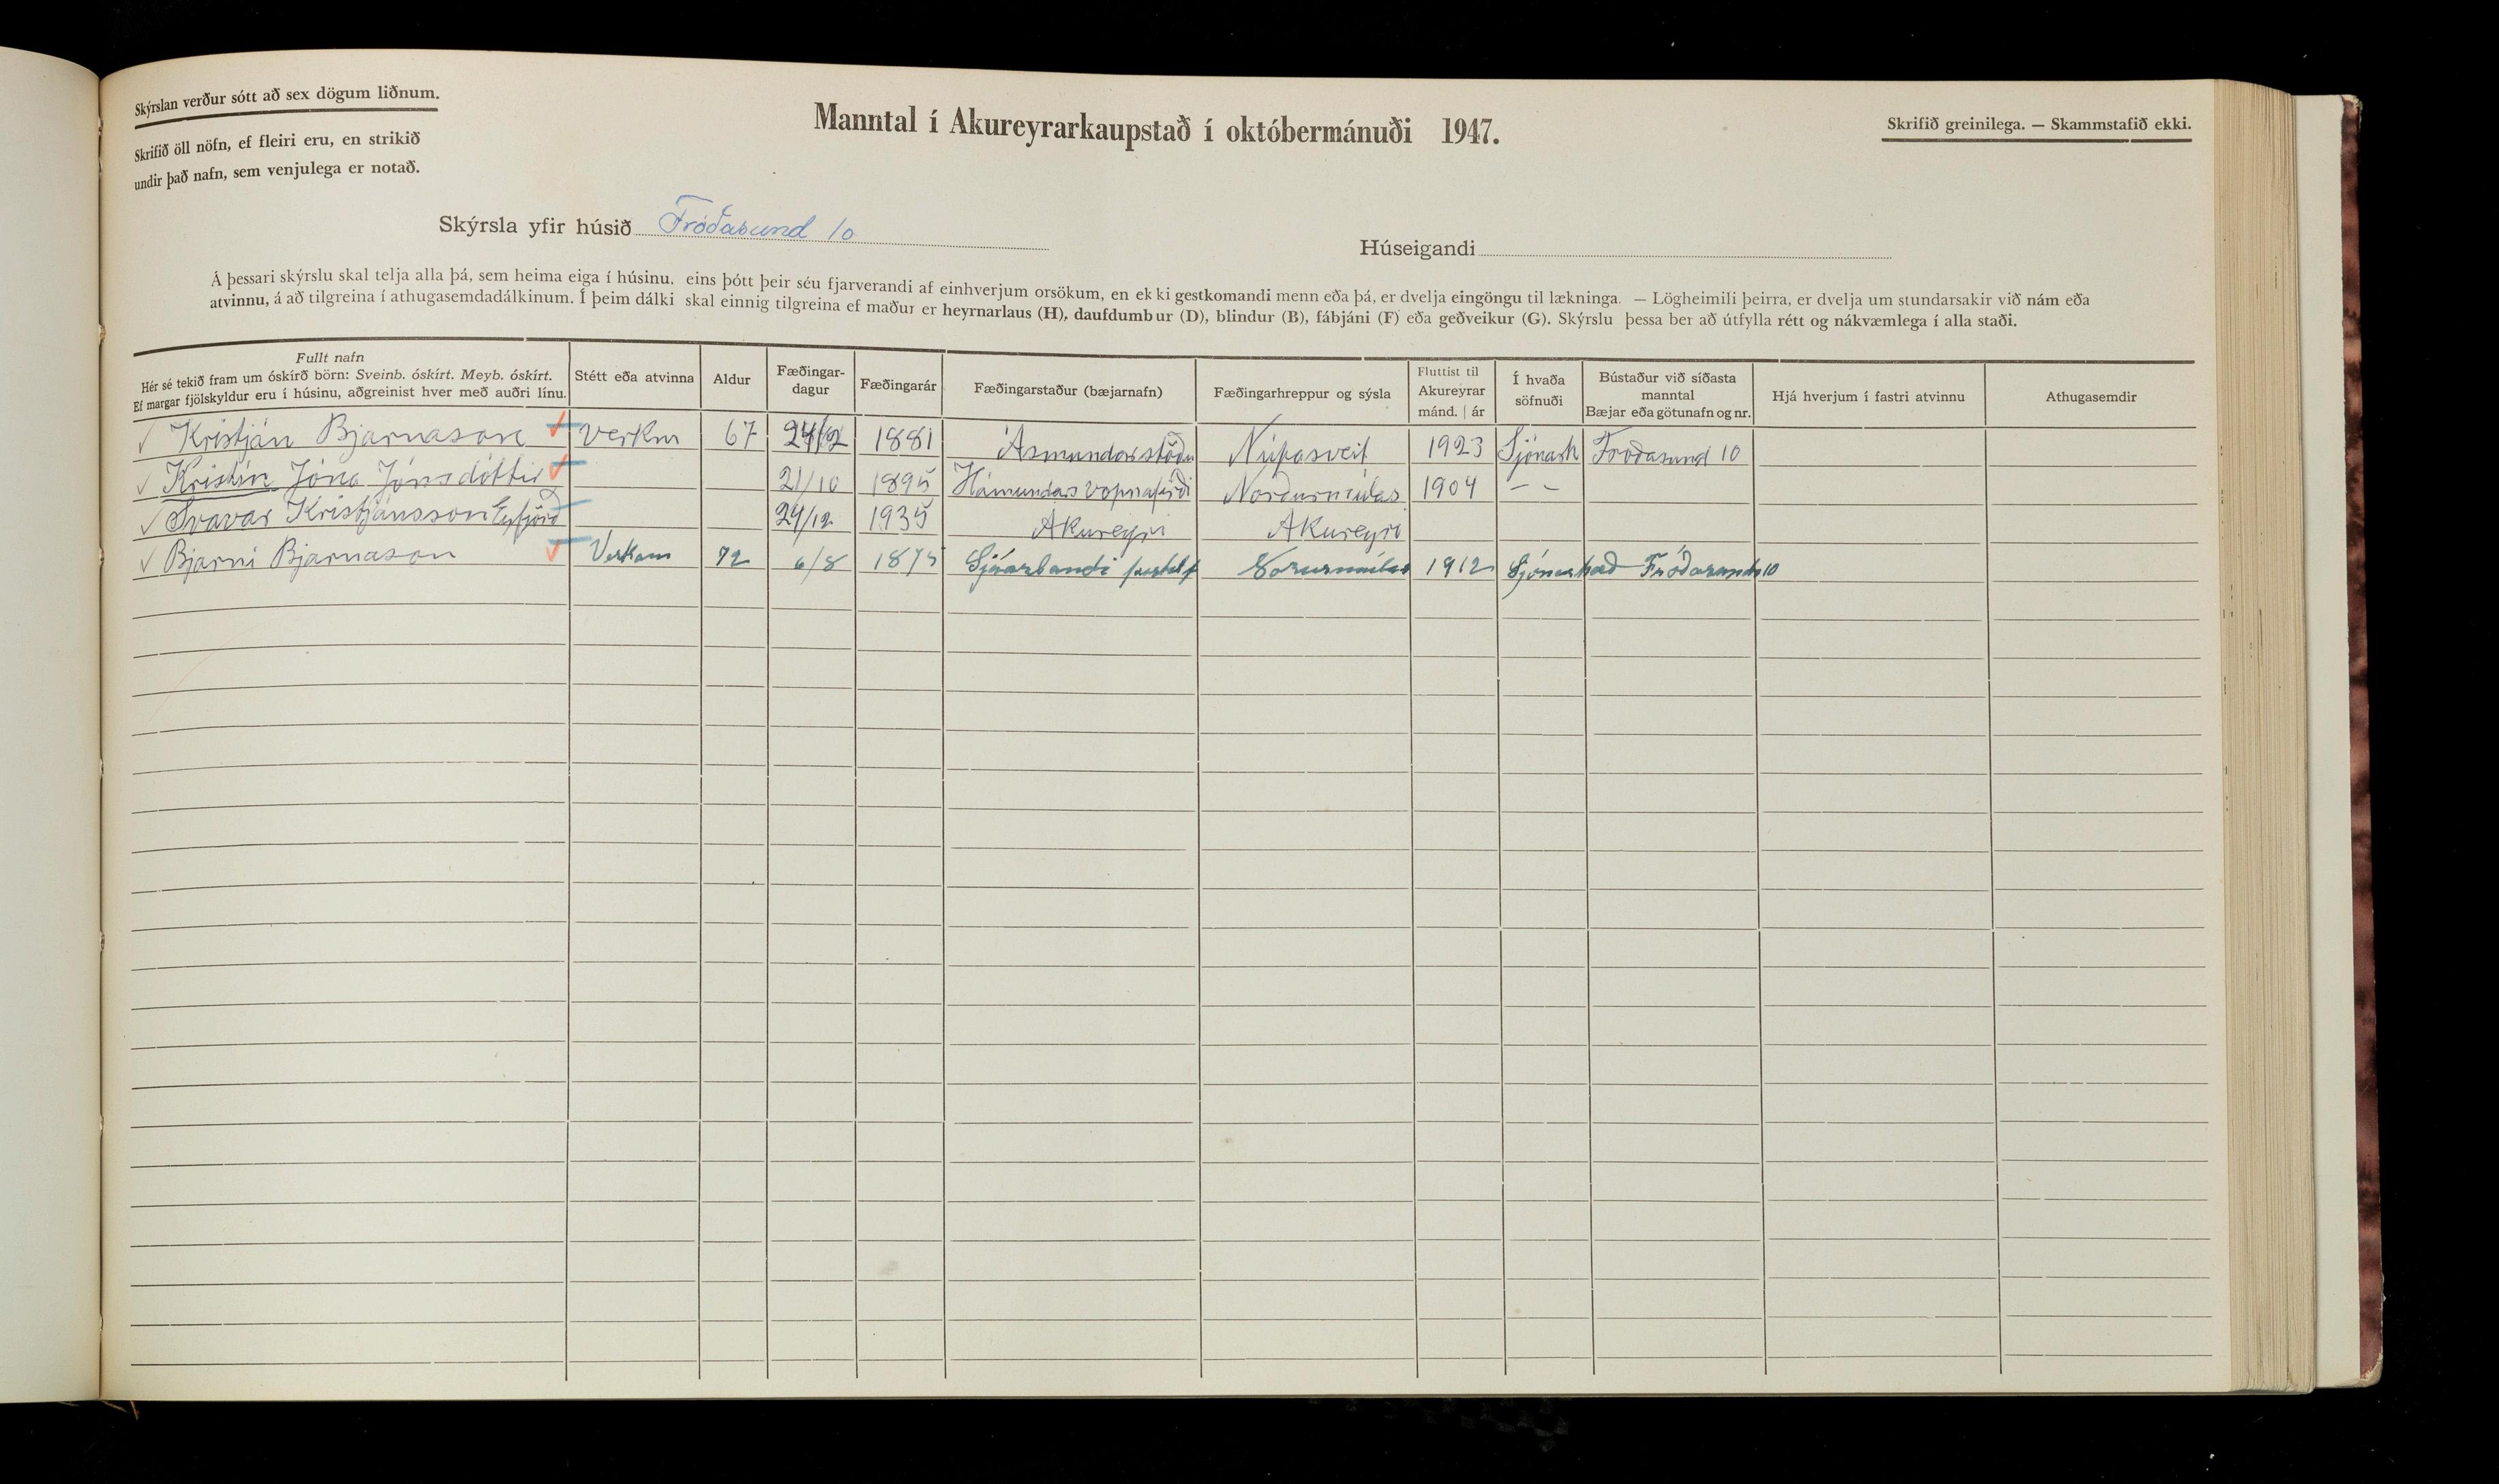 Skýrslan verður sótt að sex dögum liðnum.
Skrifið öll nöfn, ef fleiri eru, en strikið
undir það nafn, sem venjulega er notað.
Manntal í Akureyrarkaupstað í októbermánuði 1947.
Skrifið greinilega. — Skammstafið ekki.
Skýrsla yfir húsið Fróðasund 10
Húseigandi
Á þessari skýrslu skal telja alla þá, sem heima eiga í húsinu, eins þótt þeir séu fjarverandi af einhverjum orsökum, en ekki gestkomandi menn eða þá, er dvelja eingöngu til lækninga. — Lögheimili þeirra, er dvelja um stundarsakir við nám eða
atvinnu, á að tilgreina í athugasemdadálkinum. Í þeim dálki skal einnig tilgreina ef maður er heyrnarlaus (H), daufdumbur (D), blindur (B), fábjáni (F) eða geðveikur (G). Skýrslu þessa ber að útfylla rétt og nákvæmlega í alla staði.
Fullt nafn
Hér sé tekið fram um óskírð börn: Sveinb. óskírt. Meyb. óskírt.
Ef margar fjölskyldur eru í húsinu, aðgreinist hver með auðri línu.
Stétt eða atvinna
Aldur
Fæðingar-
dagur
Fæðingarár
Fæðingarstaður (bæjarnafn)
Fæðingarhreppur og sýsla
Fluttist til
Akureyrar
mánd. | ár
Í hvaða
söfnuði
Bústaður við síðasta
manntal
Bæjar eða götunafn og nr.
Hjá hverjum í fastri atvinnu
Athugasemdir
✓ Kristján Bjarnason ✓ Verkm 67 1881 Ásmundarstöðu Núpasveit 1923 Sjónarh Froðasund 10
✓ Kristín Jóna Jónsdóttir ✓ 21/10 1895 Hámundars Vopnafirði Norðurmúlas 1904 — —
✓ Svavar Kristjánsson Eyfjörð 24/12 1935 Akureyri Akureyri
✓ Bjarni Bjarnason ✓ Verkam 72 6/8 1875 1912 Fróðasund 10